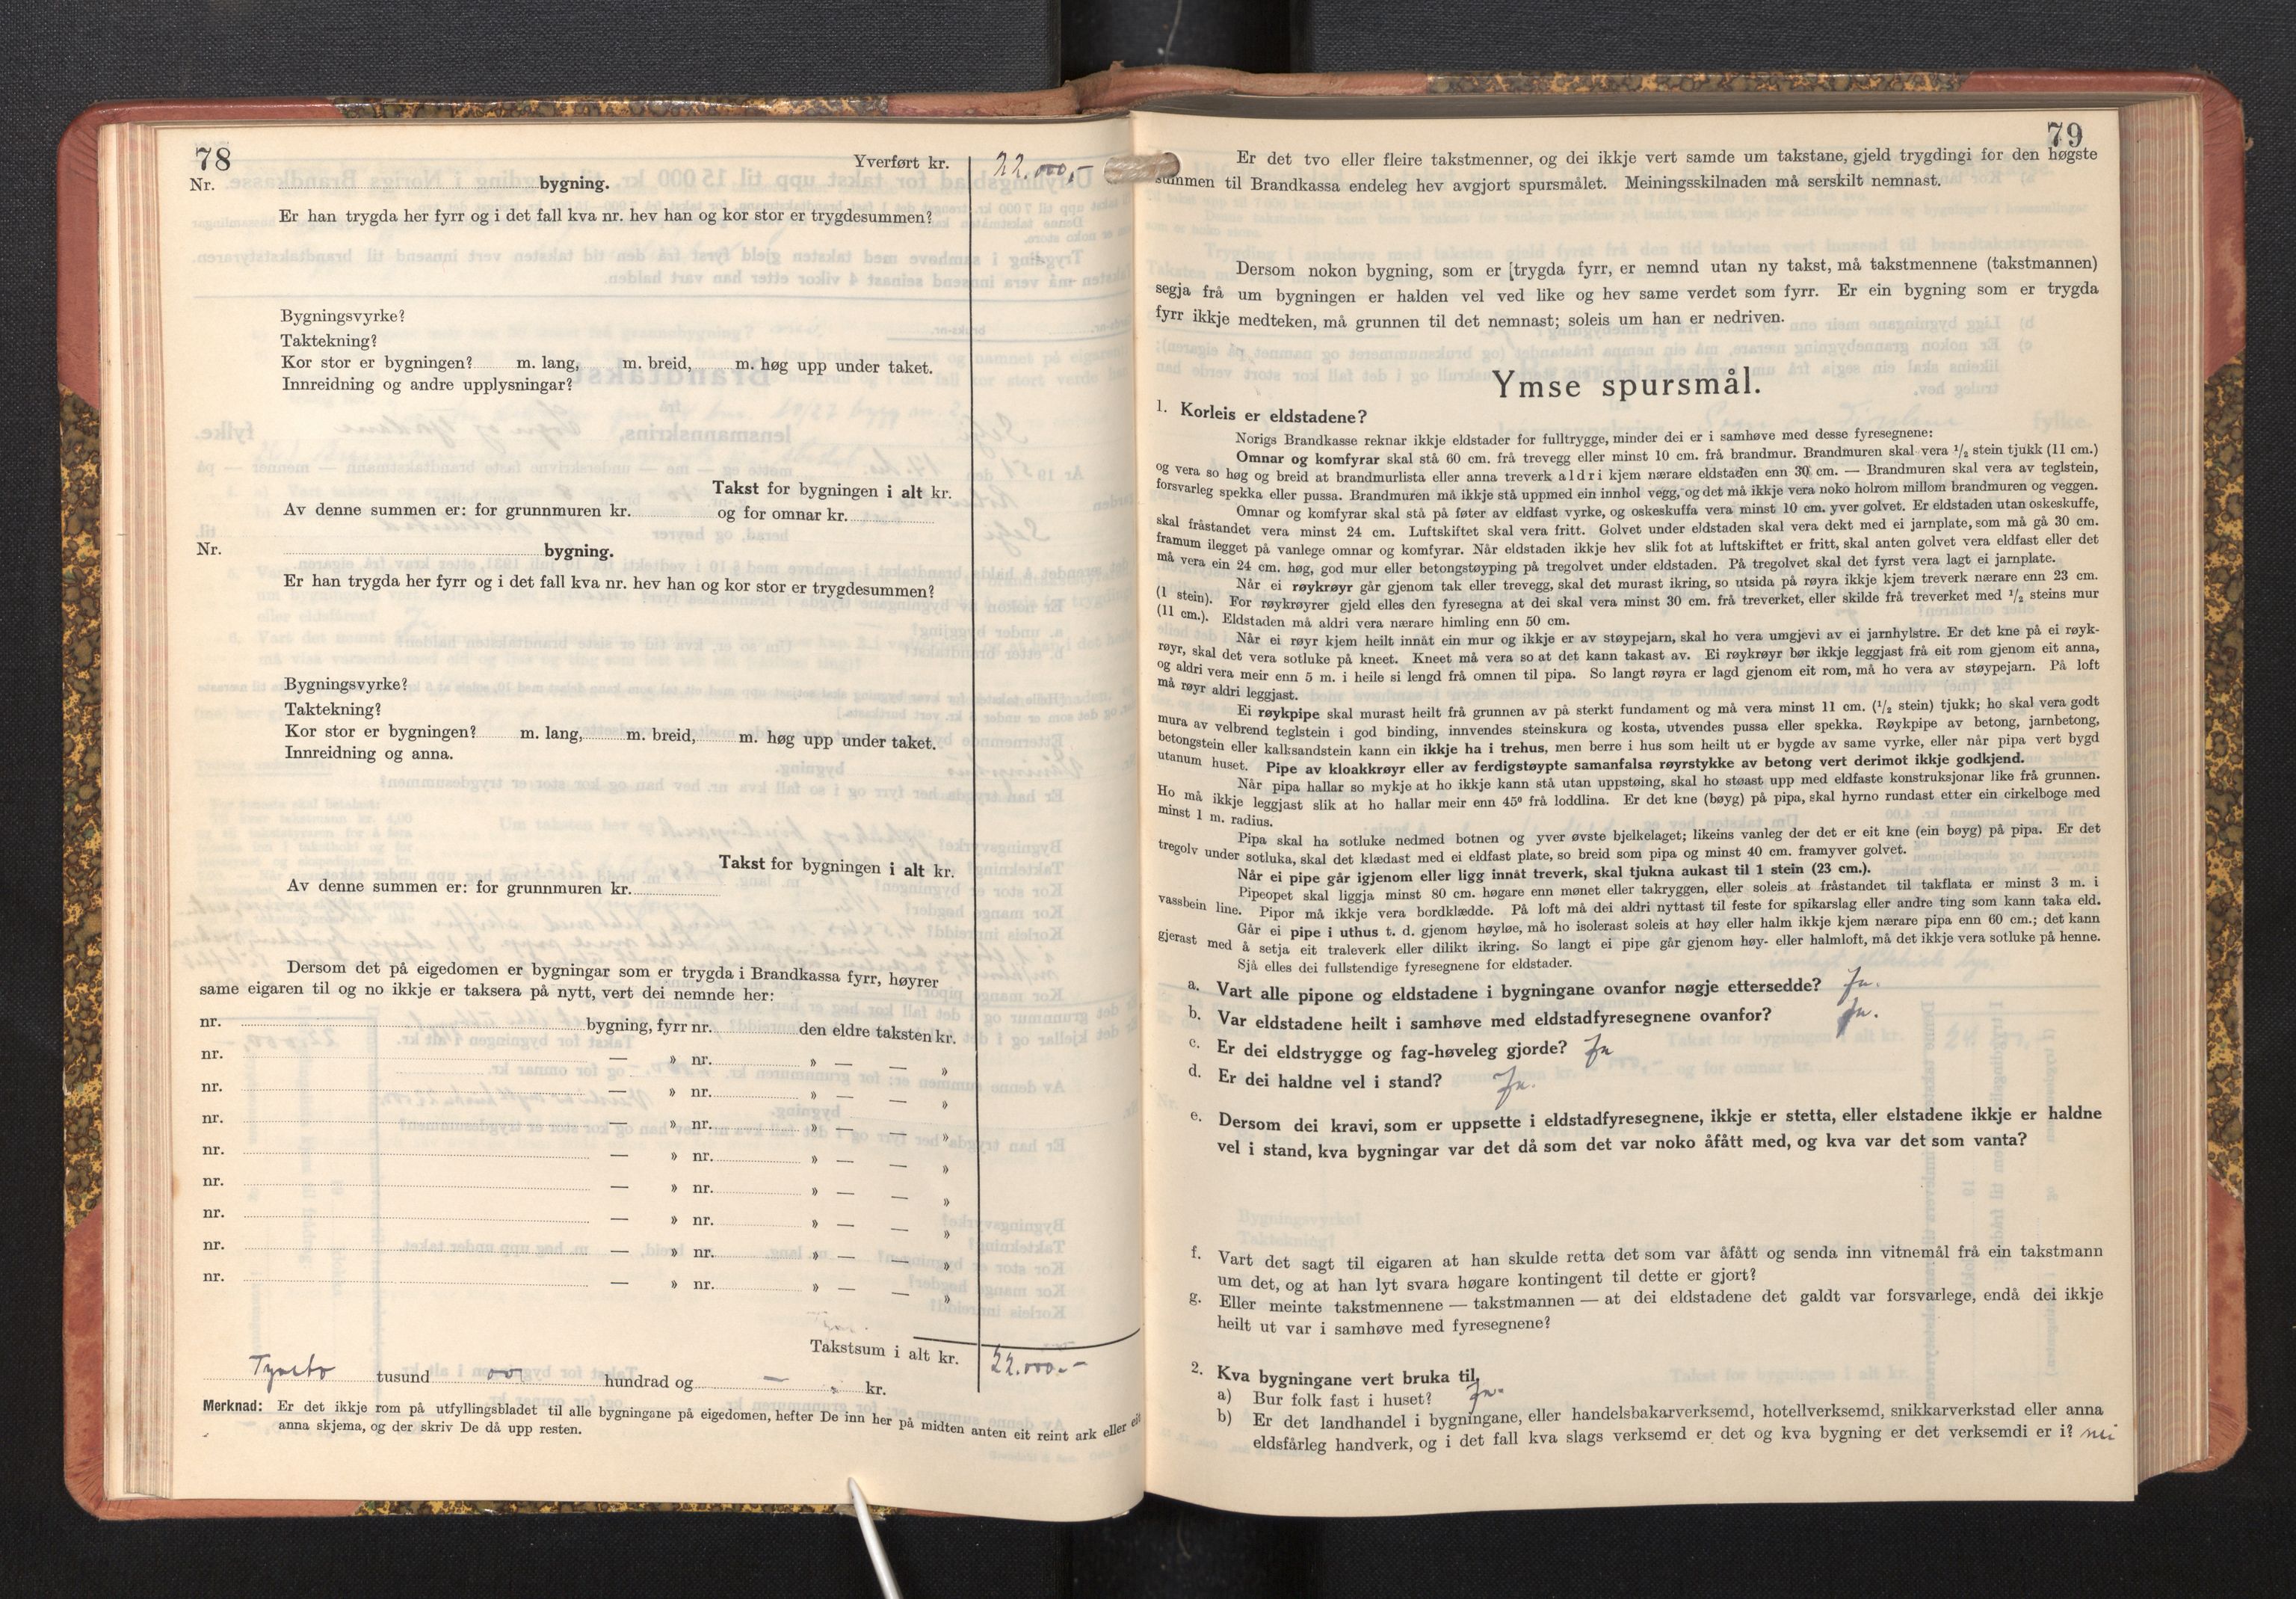 78
Yverført kr. 22.000,-
Nr. bygning.
Er han trygda her fyrr og i det fall kva nr. hev han og kor stor er trygdesummen?
Bygningsvyrke?
Taktekning?
Kor stor er bygningen? m. lang, m. breid, m. høg upp under taket.
Innreidning og andre upplysningar?
Takst for bygningen i alt kr.
Av denne summen er: for grunnmuren kr. og for omnar kr.
Nr. bygning.
Er han trygda her fyrr og i det fall kva nr. hev han og kor stor er trygdesummen?
Bygningsvyrke?
Taktekning?
Kor stor er bygningen? m. lang, m. breid, m. høg upp under taket.
Innreidning og anna.
Takst for bygningen i alt kr.
Av denne summen er: for grunnmuren kr.
Dersom det på eigedomen er bygningar som er trygda i Brandkassa fyrr, høyrer
same eigaren til og no ikkje er taksera på nytt, vert dei nemnde her:
nr. bygning, fyrr nr. den eldre taksten kr.
nr. — » nr. » — — »
nr. — » nr. » — — »
nr. — » nr. » — — »
nr. — » nr. » — — »
nr. — » nr. » — — »
nr. — » nr. » — — »
nr. — » nr. » — — »
nr. — » nr. » — — »
Takstsum i alt kr. 22.000.-
tusund oo hundrad og — kr.
Merknad: Er det ikkje rom på utfyllingsbladet til alle bygningane på eigedomen, hefter De inn her på midten anten eit reint ark eller eit
anna skjema, og der skriv De då upp resten.
79
Er det tvo eller fleire takstmenner, og dei ikkje vert samde um takstane, gjeld trygdingi for den høgste
summen til Brandkassa endeleg hev avgjort spursmålet. Meiningsskilnaden må serskilt nemnast.
Dersom nokon bygning, som er [trygda fyrr, er nemnd utan ny takst, må takstmennene (takstmannen)
segja frå um bygningen er halden vel ved like og hev same verdet som fyrr. Er ein bygning som er trygda
fyrr ikkje medteken, må grunnen til det nemnast; soleis um han er nedriven.
Ymse spursmål.
1. Korleis er eldstadene?
Norigs Brandkasse reknar ikkje eldstader for fulltrygge, minder dei er i samhøve med desse fyresegnene:
Omnar og komfyrar skal stå 60 cm. frå trevegg eller minst 10 cm. frå brandmur. Brandmuren skal vera 1/2 stein tjukk (11 cm.)
og vera so høg og breid at brandmurlista eller anna treverk aldri kjem nærare eldstaden enn 30 cm. — Brandmuren skal vera av teglstein,
forsvarleg spekka eller pussa. Brandmuren må ikkje stå uppmed ein innhol vegg, og det må ikkje vera noko holrom millom brandmuren og veggen.
Omnar og komfyrar skal stå på føter av eldfast vyrke, og oskeskuffa vera minst 10 cm. yver golvet. Er eldstaden utan oskeskuffe,
skal fråstandet vera minst 24 cm. Luftskiftet skal vera fritt. Golvet under eldstaden skal vera dekt med ei jarnplate, som må gå 30 cm.
framum ilegget på vanlege omnar og komfyrar. Når eldstaden ikkje hev slik fot at luftskiftet er fritt, skal anten golvet vera eldfast eller det
må vera ein 24 cm. høg, god mur eller betongstøyping på tregolvet under eldstaden. På tregolvet skal det fyrst vera lagt ei jarnplate.
Når ei røykrøyr går gjenom tak eller trevegg, skal det murast ikring, so utsida på røyra ikkje kjem treverk nærare enn 23 cm.
(1 stein). For røykrøyrer gjeld elles den fyresegna at dei skal vera minst 30 cm. frå treverket, eller skilde frå treverket med 1/2 steins mur
(11 cm.). Eldstaden må aldri vera nærare himling enn 50 cm.
Når ei røyr kjem heilt innåt ein mur og ikkje er av støypejarn, skal ho vera umgjevi av ei jarnhylstre. Er det kne på ei røyk-
røyr, skal det vera sotluke på kneet. Kneet må vera so at det kann takast av. Ei røykrøyr bør ikkje leggjast frå eit rom gjenom eit anna,
og aldri vera meir enn 5 m. i heile si lengd frå omnen til pipa. So langt røyra er lagd gjenom eit rom, må ho vera av støypejarn. På loft
må røyr aldri leggjast.
Ei røykpipe skal murast heilt frå grunnen av på sterkt fundament og må vera minst 11 cm. (1/2 stein) tjukk; ho skal vera godt
mura av velbrend teglstein i god binding, innvendes steinskura og kosta, utvendes pussa eller spekka. Røykpipe av betong, jarnbetong,
betongstein eller kalksandstein kann ein ikkje ha i trehus, men berre i hus som heilt ut er bygde av same vyrke, eller når pipa vert bygd
utanum huset. Pipe av kloakkrøyr eller av ferdigstøypte samanfalsa røyrstykke av betong vert derimot ikkje godkjend.
Når pipa hallar so mykje at ho ikkje kann stå utan uppstøing, skal ho støast upp med eldfaste konstruksjonar like frå grunnen.
Ho må ikkje leggjast slik at ho hallar meir enn 45° frå loddlina. Er det kne (bøyg) på pipa, skal hyrno rundast etter ein cirkelboge med
minst 1 m. radius.
Pipa skal ha sotluke nedmed botnen og yver øvste bjelkelaget; likeins vanleg der det er eit kne (ein bøyg) på pipa. Er det
tregolv under sotluka, skal det klædast med ei eldfast plate, so breid som pipa og minst 40 cm. framyver golvet.
Når ei pipe går igjenom eller ligg innåt treverk, skal tjukna aukast til 1 stein (23 cm.).
Pipeopet skal liggja minst 80 cm. høgare enn mønet eller takryggen, eller soleis at fråstandet til takflata er minst 3 m. i
vassbein line. Pipor må ikkje vera bordklædde. På loft må dei aldri nyttast til feste for spikarslag eller andre ting som kann taka eld.
Går ei pipe i uthus t. d. gjenom høyløe, må ho isolerast soleis at høy eller halm ikkje kjem nærare pipa enn 60 cm.; det kann
gjerast med å setja eit traleverk eller dilikt ikring. So langt ei pipe går gjenom høy- eller halmloft, må det ikkje vera sotluke på henne.
Sjå elles dei fullstendige fyresegnene for eldstader.
a. Vart alle pipone og eldstadene i bygningane ovanfor nøgje ettersedde? Ja.
b. Var eldstadene heilt i samhøve med eldstadfyresegnene ovanfor? Ja.
c. Er dei eldstrygge og fag-høveleg gjorde? Ja
d. Er dei haldne vel i stand? Ja.
e. Dersom dei kravi, som er uppsette i eldstadfyresegnene, ikkje er stetta, eller elstadene ikkje er haldne
vel i stand, kva bygningar var det då som det var noko åfått med, og kva var det som vanta?
f. Vart det sagt til eigaren at han skulde retta det som var åfått og senda inn vitnemål frå ein takstmann
um det, og at han lyt svara høgare kontingent til dette er gjort?
g. Eller meinte takstmennene — takstmannen — at dei eldstadene det galdt var forsvarlege, endå dei ikkje
heilt ut var i samhøve med fyresegnene?
2. Kva bygningane vert bruka til.
a) Bur folk fast i huset? Ja.
b) Er det landhandel i bygningane, eller handelsbakarverksemd, hotellverksemd, snikkarverkstad eller anna
eldsfårleg handverk, og i det fall kva slags verksemd er det og kva bygning er det verksemdi er i? nei